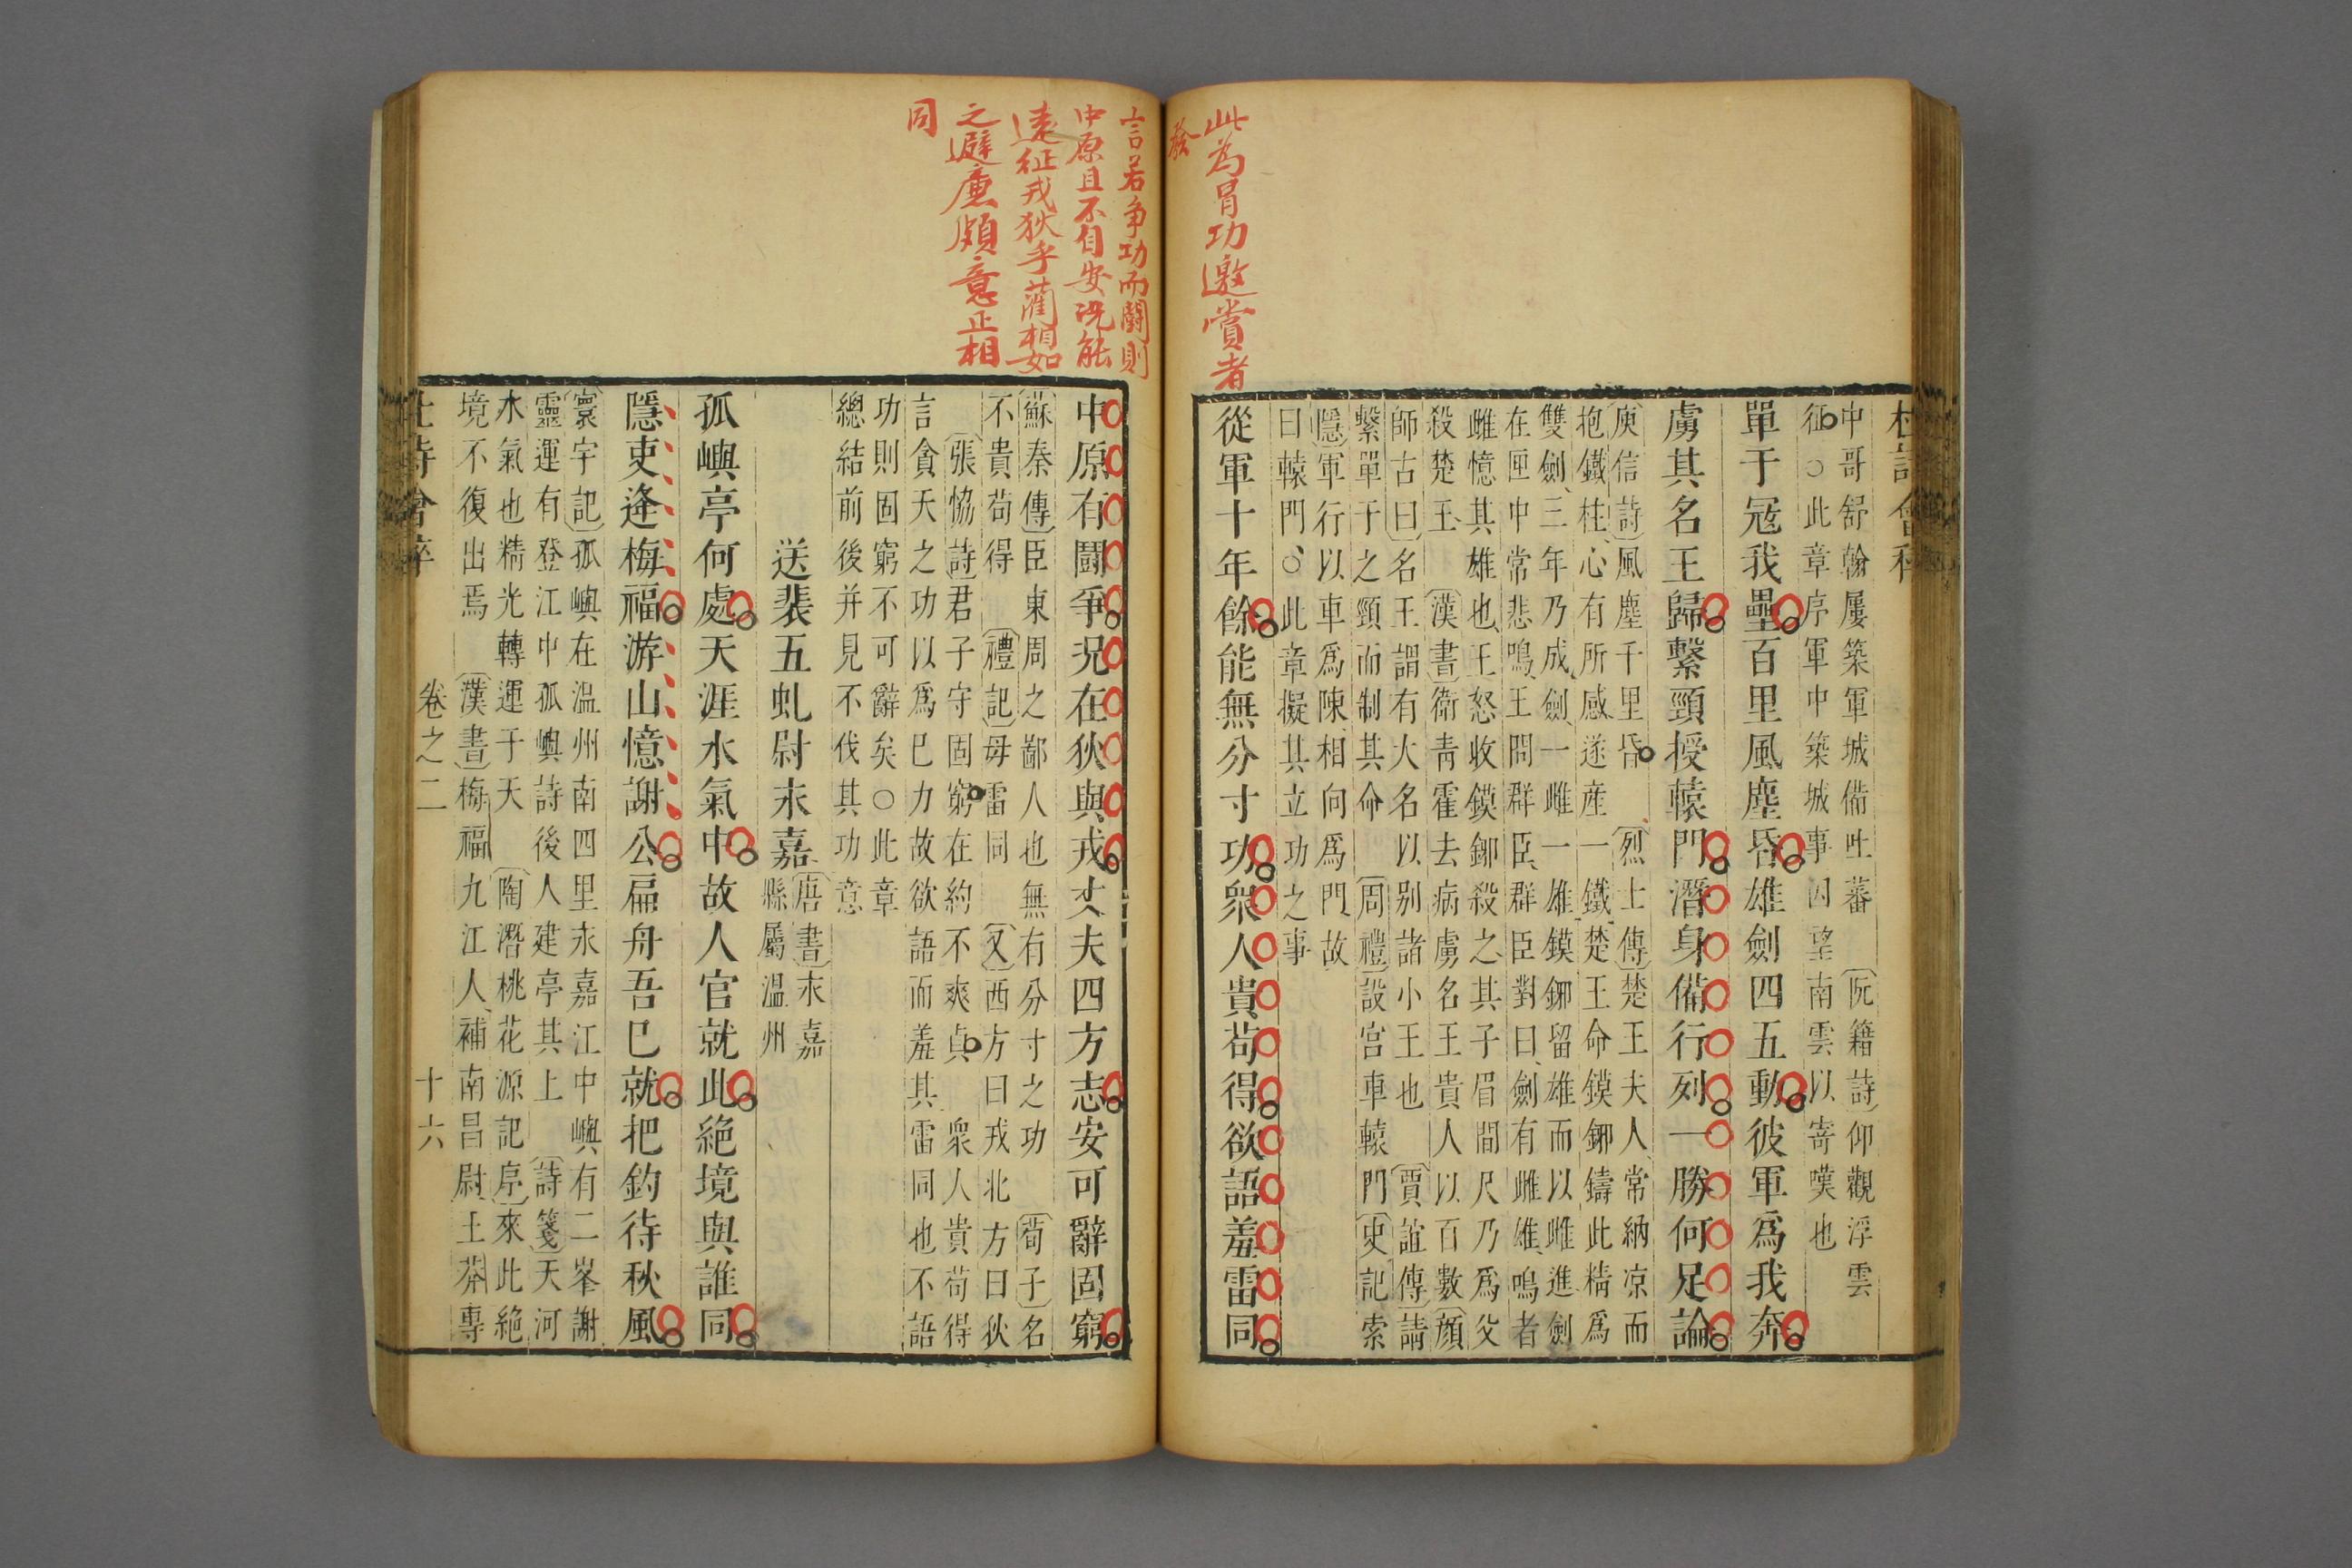 此為冒功邀賞者
發
杜詩會稡
中哥舒翰屢築軍城備吐蕃 阮籍詩仰觀浮雲
征○此章序軍中築城事因望南雲以寄嘆也
單于寇我壘百里風塵昏雄劍四五動彼軍爲我奔
虜其名王歸繫頸授轅門潛身備行列一勝何足論
庾信詩風塵千里昏 烈士傳楚王夫人常納凉而
抱鐵柱心有所感遂産一鐵楚王命鏌鋣鑄此精爲
雙劍三年乃成劍一雌一雄鏌鋣留雄而以雌進劍
在匣中常悲鳴王問群臣群臣對曰劍有雌雄鳴者
雌憶其雄也王怒收鏌鋣殺之其子眉間尺乃爲父
殺楚王 漢書衛青霍去病虜名王貴人以百數顏
師古曰名王謂有大名以别諸小王也 賈誼傳請
繫單于之頸而制其命 周禮設宫車轅門史記索
隱軍行以車爲陳相向爲門故
曰轅門○此章擬其立功之事
從軍十年餘能無分寸功衆人貴苟得欲語羞雷同
言若争功而鬭則
中原且不自安况能
遠征戎狄乎藺相如
之避廉頗意正相
同
中原有鬭爭况在狄與戎丈夫四方志安可辭固窮
蘇秦傳臣東周之鄙人也無有分寸之功 荀子名
不貴苟得 禮記毋雷同 又西方曰戎北方曰狄
張恊詩君子守固窮在約不爽貞 衆人貴苟得
言貪天之功以爲巳力故欲語而羞其雷同也不語
功則固窮不可辭矣○此章
總結前後并見不伐其功意
送裴五虬尉永嘉 唐書永嘉
縣屬温州
孤嶼亭何處天涯水氣中故人官就此絶境與誰同
隱吏逢梅福游山憶謝公扁舟吾巳就把釣待秋風
寰宇記孤嶼在温州南四里永嘉江中嶼有二峯謝
靈運有登江中孤嶼詩後人建亭其上 詩箋天河
水氣也精光轉運于天 陶潛桃花源記序來此絶
境不復出焉 漢書梅福九江人補南昌尉王莽專
杜詩會稡 卷之二 十六